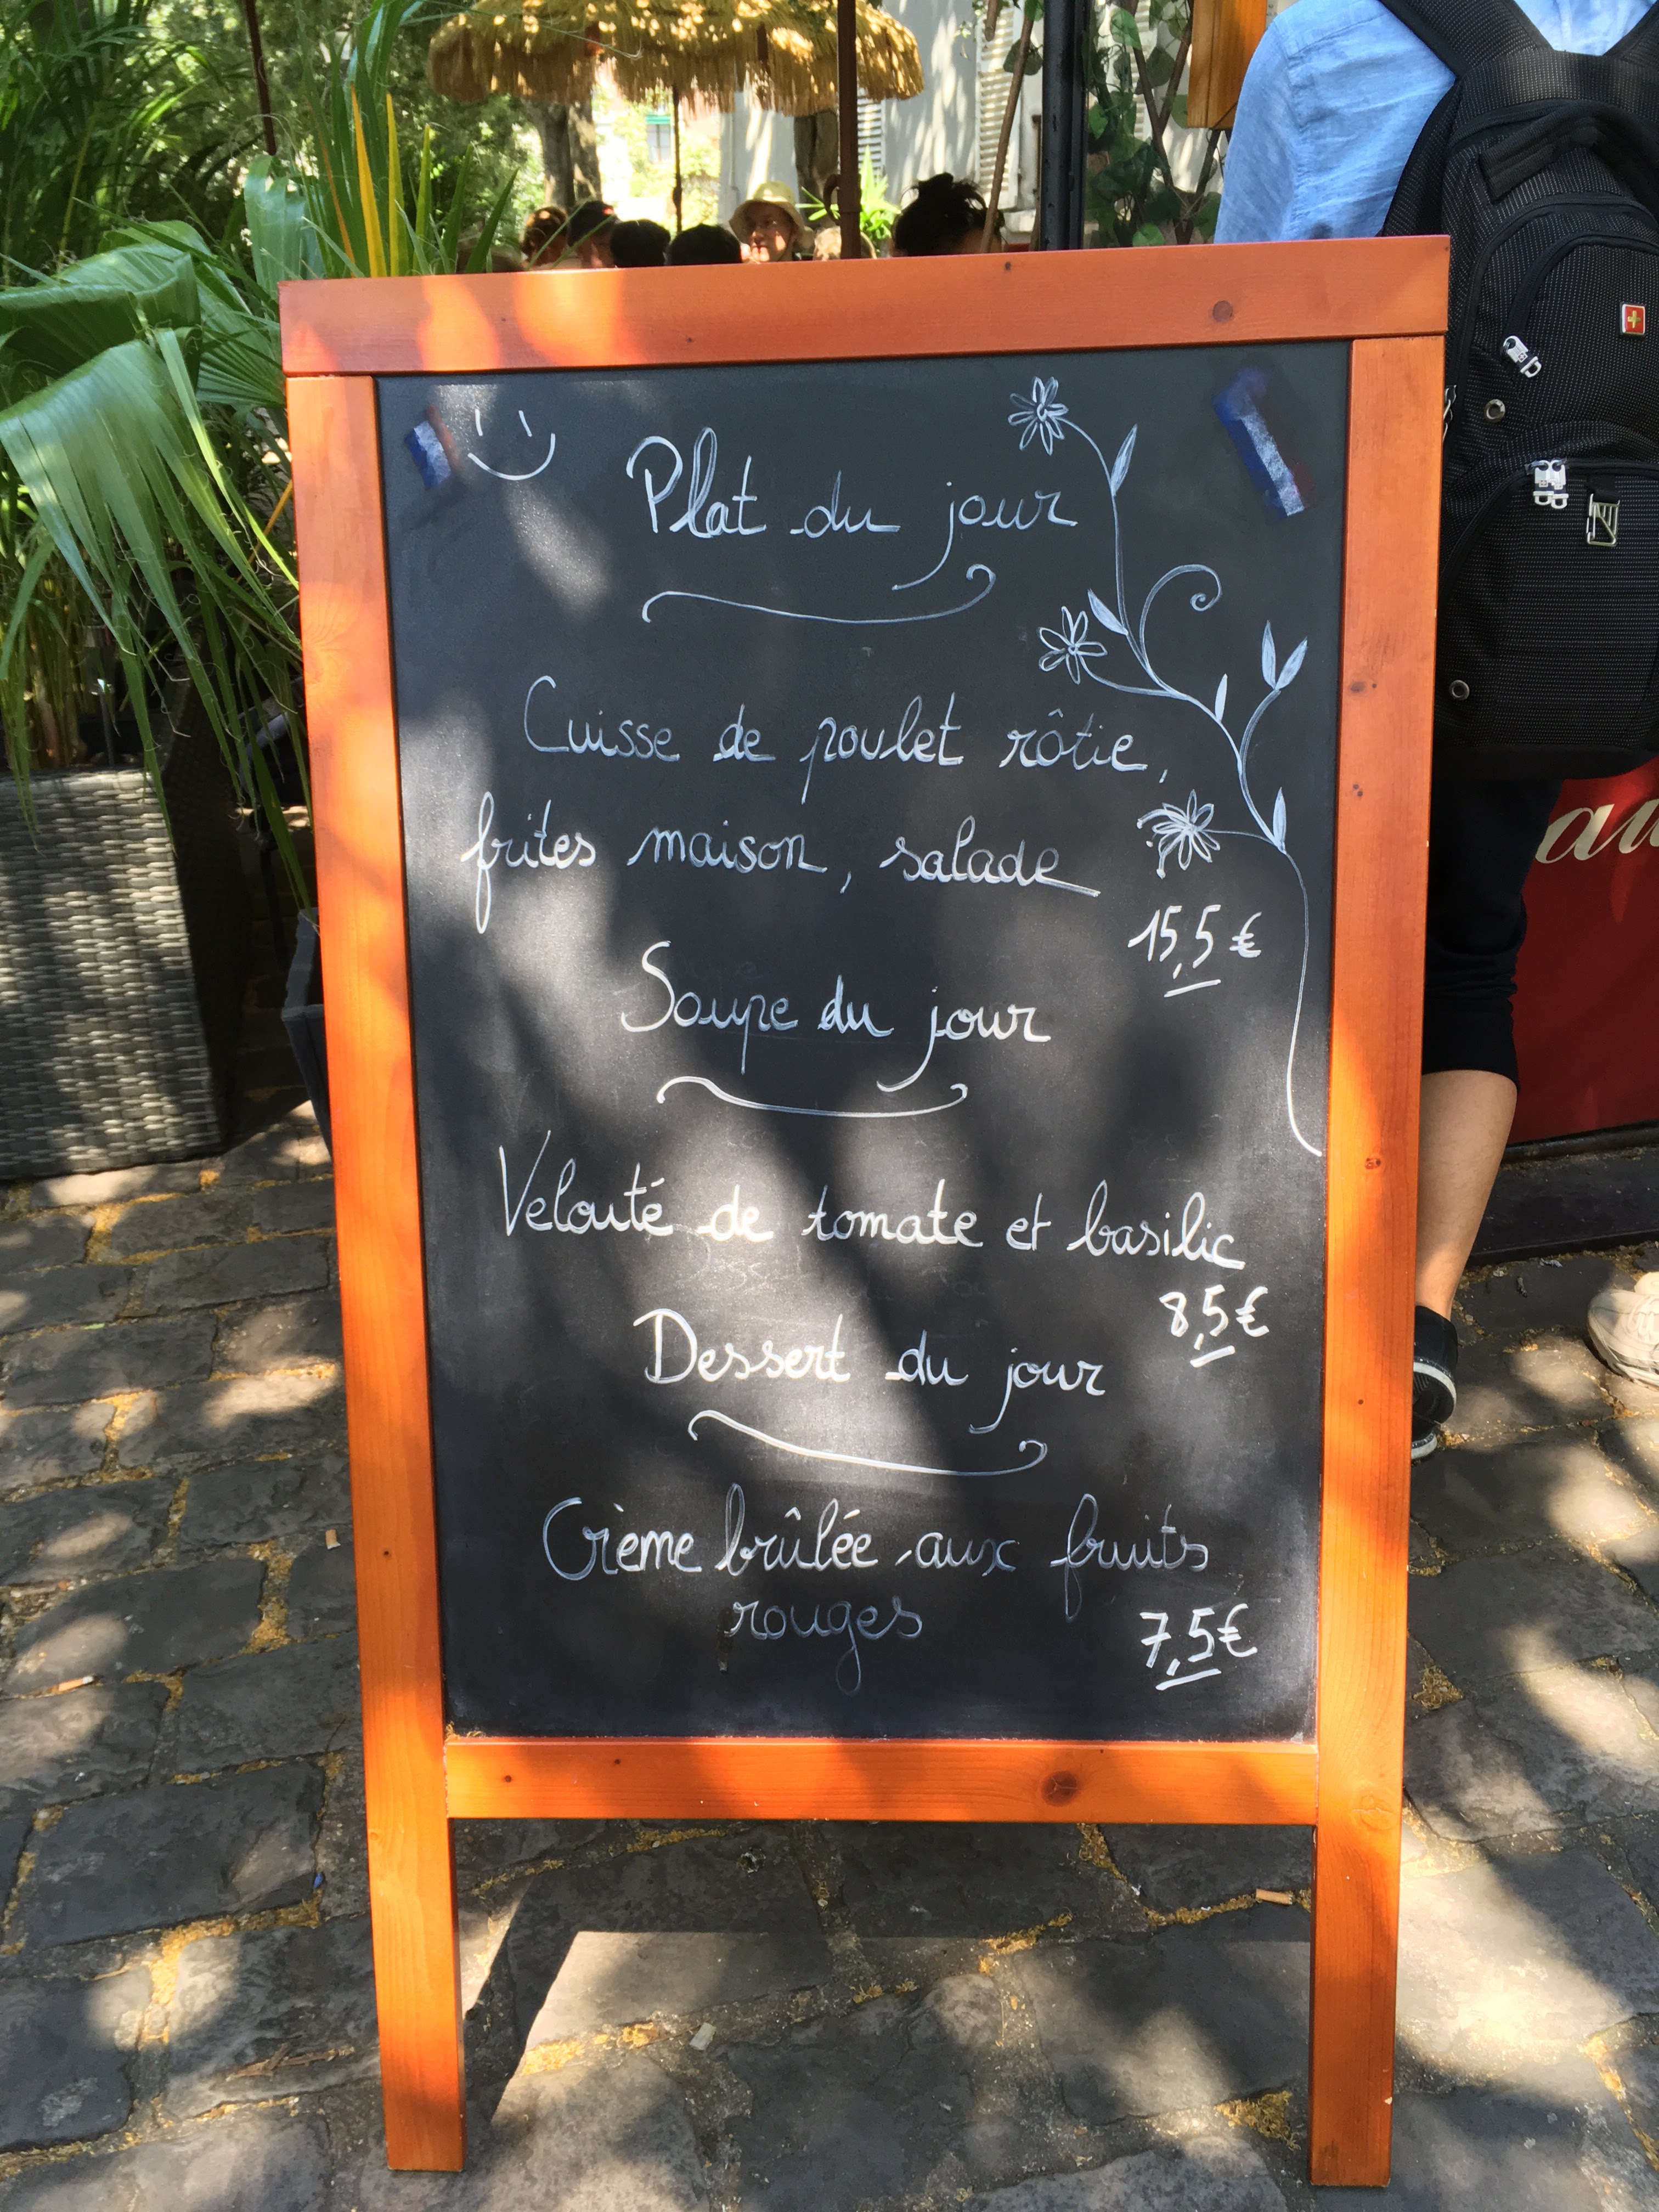 Plat du jour
Cuisse de poulet rôtie,
frites maison, salade
15,5 €
Soupe du jour
Velouté de tomate et basilic
8,5€
Dessert du jour
Crème brûlée aux fruits
rouges
7,5€